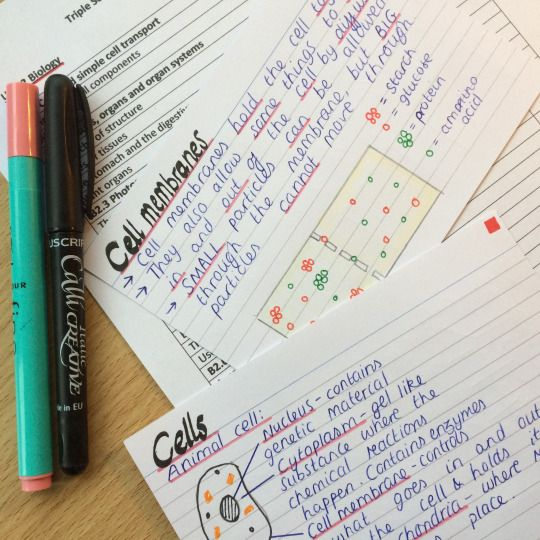 Triple Sc
Biology
and simple cell transport
components
, organs and organ systems
of structure
tissues
stomach and the digesti
ant organs
B2.3 Phot
Cell membranes
→ Cell membranes hold the cell to
→ They also allow some things to
in and out of the cell by diffus
→ SMALL particles can be allowed
through the membrane, but BIG
particles cannot move through
= starch
= glucose
= protein
= amino
acid
USCRIP
Italic
CALLI CREATIVE
e in EU
OUR
B2.
Cells
Animal cell:
Nucleus - contains
genetic material
Cytoplasm - gel like
substance where the
chemical reactions
happen. Contains enzymes
Cell membrane - controls
what goes in and out
the cell & holds it
chondria - where
place.